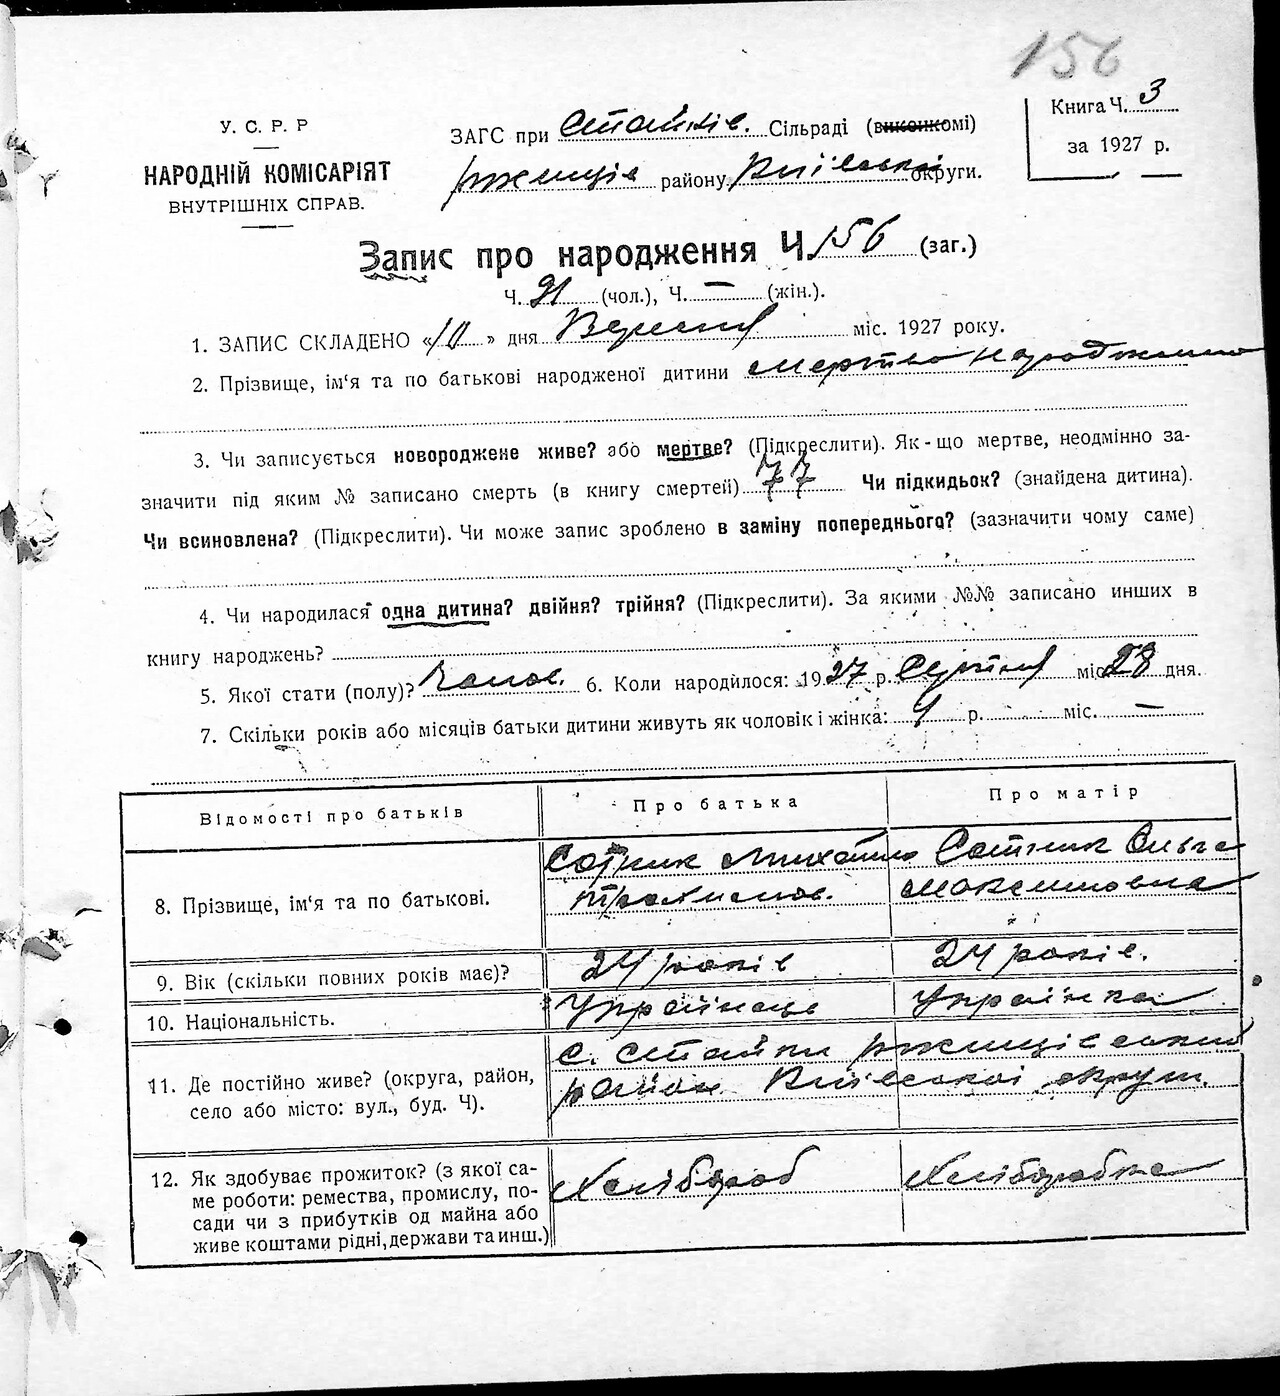 156
У. С. Р. Р
НАРОДНІЙ КОМІСАРІЯТ
ВНУТРІШНІХ СПРАВ.
ЗАГС при Стайків. Сільраді (виконкомі)
Ржищів району Київської округи.
Книга Ч. 3
за 1927 р.
Запис про народження Ч. 156 (заг.)
Ч. 91 (чол.), Ч. — (жін.).
1. ЗАПИС СКЛАДЕНО «10» дня Вересня міс. 1927 року.
2. Прізвище, ім'я та по батькові народженої дитини мертво народжено
3. Чи записується новороджене живе? або мертве? (Підкреслити). Як-що мертве, неодмінно за-
значити під яким № записано смерть (в книгу смертей) 77 Чи підкидьок? (знайдена дитина).
Чи всиновлена? (Підкреслити). Чи може запис зроблено в заміну попереднього? (зазначити чому саме)
4. Чи народилася одна дитина? двійня? трійня? (Підкреслити). За якими №№ записано инших в
книгу народжень?
5. Якої стати (полу)? Чолов. 6. Коли народилося: 1927 р. Серпня міс. 28 дня.
7. Скільки років або місяців батьки дитини живуть як чоловік і жінка: 4 р. міс. —
Відомості про батьків
Про батька
Про матір
8. Прізвище, ім'я та по батькові.
Сотник Михайло
Трохимов.
Сотник Ольга
Максимовна
9. Вік (скільки повних років має)?
24 років
24 років.
10. Національність.
Українець
Українка
11. Де постійно живе? (округа, район,
село або місто: вул., буд. Ч).
с. Стайки Ржищівський
район Київської округи.
12. Як здобуває прожиток? (з якої са-
ме роботи: ремества, промислу, по-
сади чи з прибутків од майна або
живе коштами рідні, держави та инш.)
Хлібороб
Хліборобка